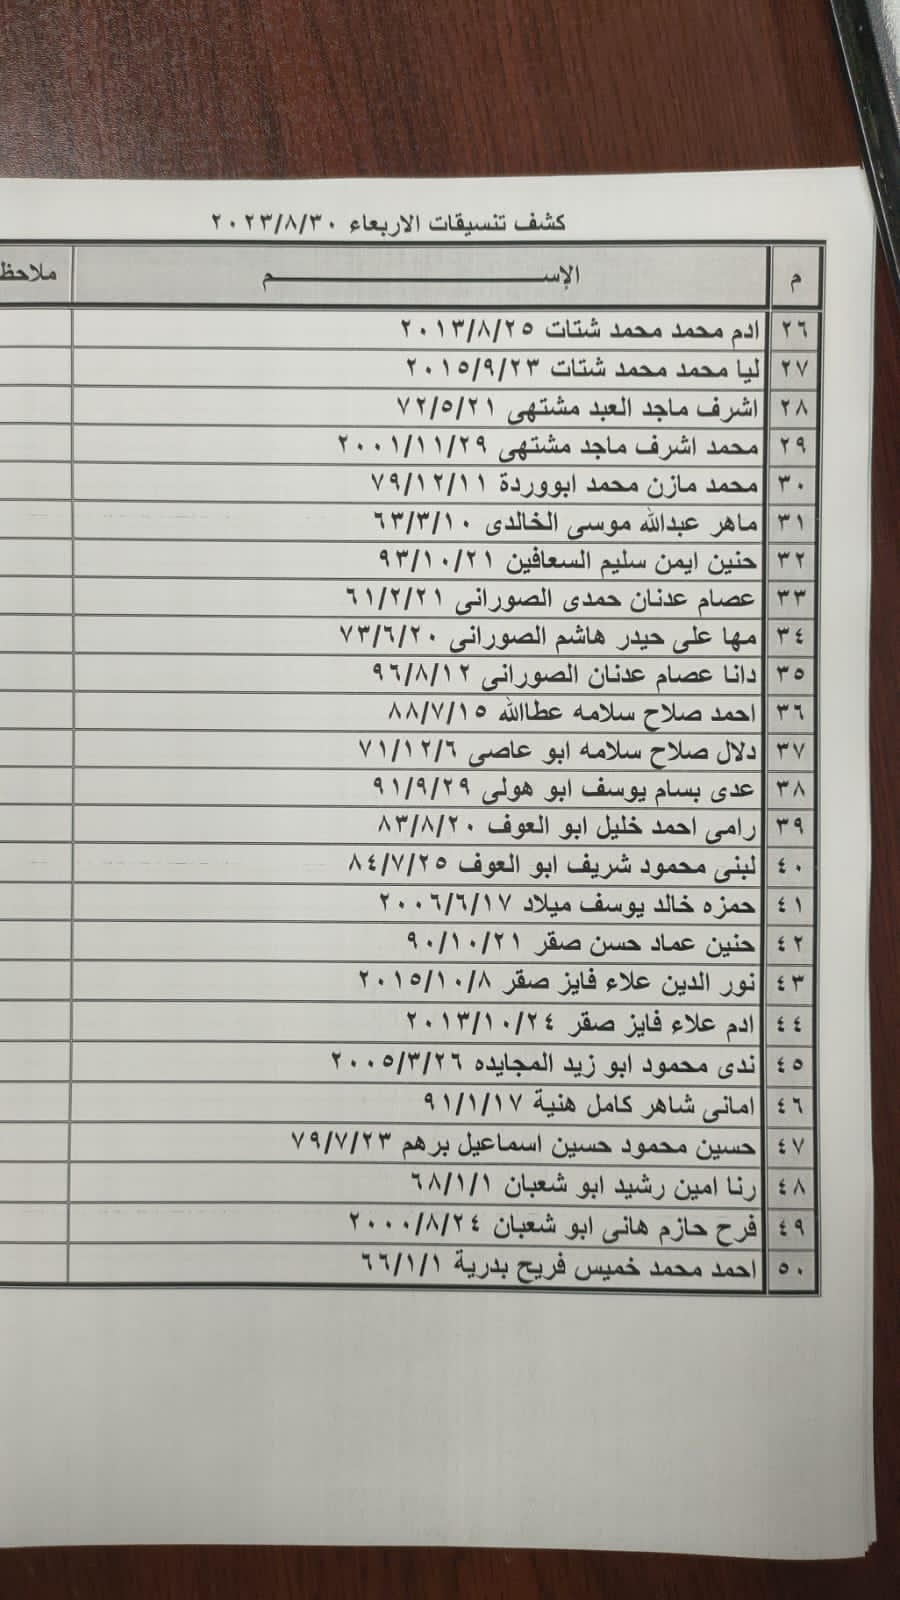 كشف تنسيقات الاربعاء ٢٠٢٣/٨/٣٠
م الإســـــــــم ملاحظ
٢٦ ادم محمد محمد شتات ٢٠١٣/٨/٢٥
٢٧ ليا محمد محمد شتات ٢٠١٥/٩/٢٣
٢٨ اشرف ماجد العبد مشتهى ٧٢/٥/٢١
٢٩ محمد اشرف ماجد مشتهى ٢٠٠١/١١/٢٩
٣٠ محمد مازن محمد ابووردة ٧٩/١٢/١١
٣١ ماهر عبدالله موسى الخالدى ٦٣/٣/١٠
٣٢ حنين ايمن سليم السعافين ٩٣/١٠/٢١
٣٣ عصام عدنان حمدى الصورانى ٦١/٢/٢١
٣٤ مها على حيدر هاشم الصورانى ٧٣/٦/٢٠
٣٥ دانا عصام عدنان الصورانى ٩٦/٨/١٢
٣٦ احمد صلاح سلامه عطاالله ٨٨/٧/١٥
٣٧ دلال صلاح سلامه ابو عاصى ٧١/١٢/٦
٣٨ عدى بسام يوسف ابو هولى ٩١/٩/٢٩
٣٩ رامى احمد خليل ابو العوف ٨٣/٨/٢٠
٤٠ لبنى محمود شريف ابو العوف ٨٤/٧/٢٥
٤١ حمزه خالد يوسف ميلاد ٢٠٠٦/٦/١٧
٤٢ حنين عماد حسن صقر ٩٠/١٠/٢١
٤٣ نور الدين علاء فايز صقر ٢٠١٥/١٠/٨
٤٤ ادم علاء فايز صقر ٢٠١٣/١٠/٢٤
٤٥ ندى محمود ابو زيد المجايده ٢٠٠٥/٣/٢٦
٤٦ امانى شاهر كامل هنية ٩١/١/١٧
٤٧ حسين محمود حسين اسماعيل برهم ٧٩/٧/٢٣
٤٨ رنا امين رشيد ابو شعبان ٦٨/١/١
٤٩ فرح حازم هانى ابو شعبان ٢٠٠٠/٨/٢٤
٥٠ احمد محمد خميس فريح بدرية ٦٦/١/١